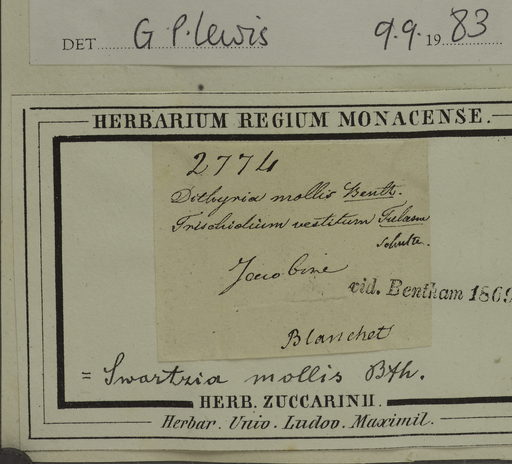 DET G P. Lewis 9.9.1983
HERBARIUM REGIUM MONACENSE.
2774
Dithyria mollis Benth.
Trischidium vestitum Tulasne
Jacobine
vid. Bentham 1869
Blanchet
= Swartzia mollis Bth.
HERB. ZUCCARINII.
Herbar. Univ. Ludov. Maximil.